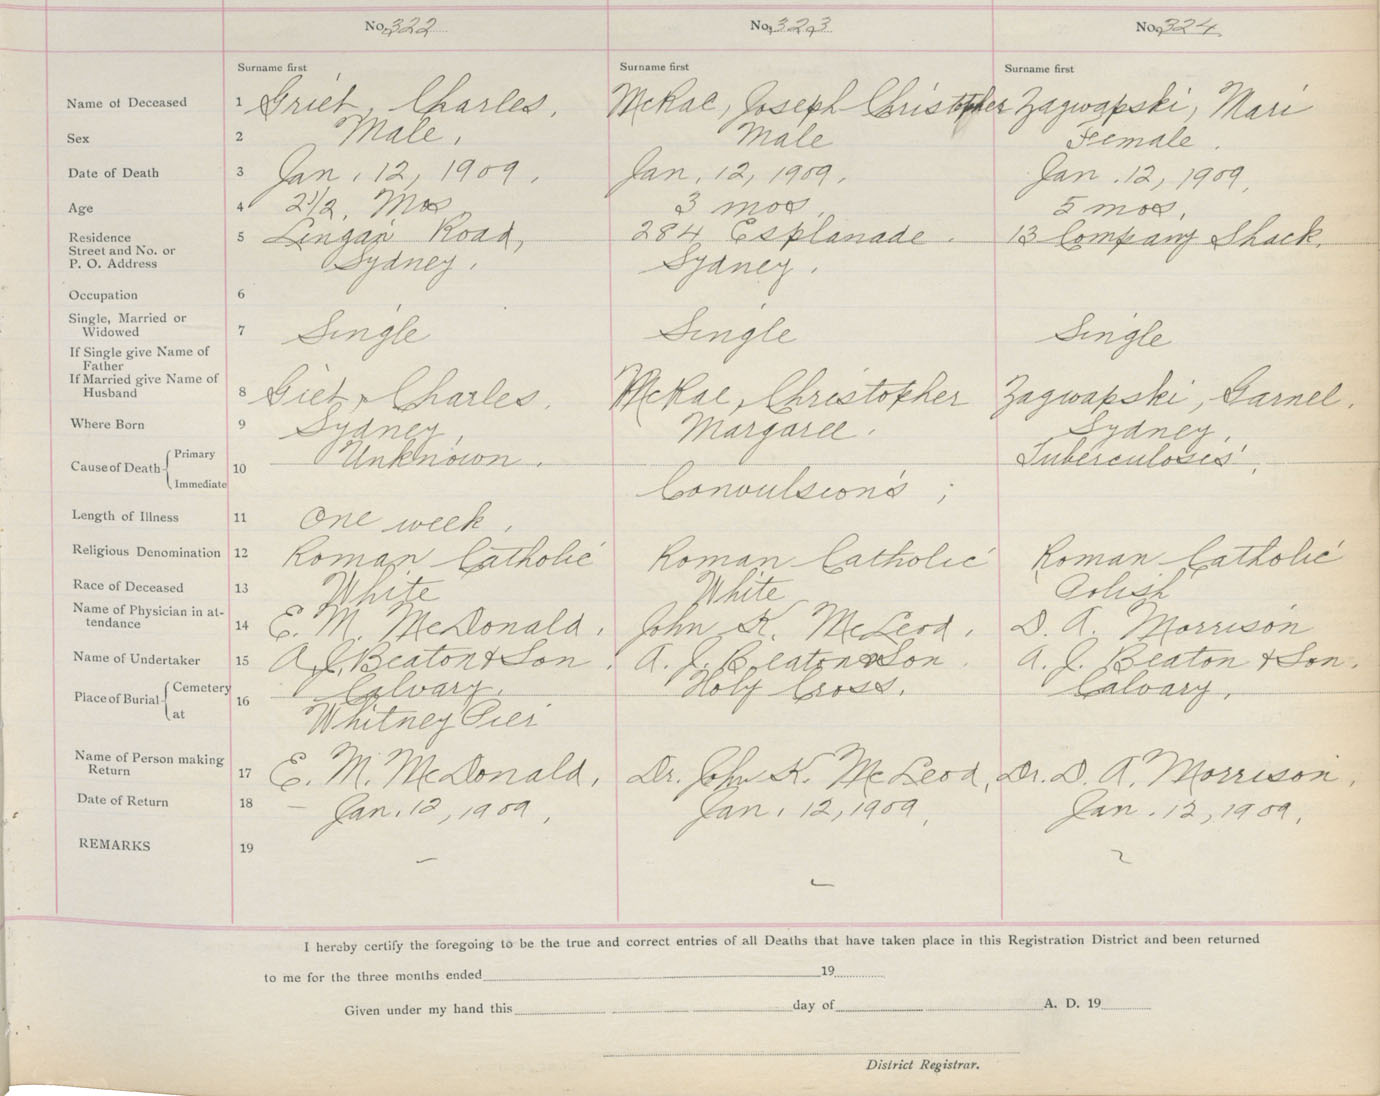 No. 322 No. 323 No. 324
Surname first Surname first Surname first
Name of Deceased 1 Griet, Charles. McRae, Joseph Christopher Zagwapski, Mari
Sex 2 Male. Male Female.
Date of Death 3 Jan. 12, 1909. Jan. 12, 1909. Jan. 12, 1909.
Age 4 2 1/2 Mos 3 mos. 5 mos.
Residence 5 Lingan Road, 284 Esplanade. 13 Company Shack.
Street and No. or
P. O. Address Sydney. Sydney.
Occupation 6
Single, Married or
Widowed 7 Single Single Single
If Single give Name of
Father
If Married give Name of
Husband 8 Giet, Charles. McRae, Christopher Zagwapski, Garnel.
Where Born 9 Sydney, Margaree. Sydney.
Cause of Death Primary 10 Unknown. Tuberculosis.
Immediate Convulsions;
Length of Illness 11 One week.
Religious Denomination 12 Roman Catholic Roman Catholic Roman Catholic
Race of Deceased 13 White White Polish
Name of Physician in at-
tendance 14 E. M. McDonald. John K. McLeod. D. A. Morrison
Name of Undertaker 15 A. J. Beaton & Son. A. J. Beaton & Son. A. J. Beaton & Son.
Place of Burial Cemetery 16 Calvary. Holy Cross. Calvary.
at Whitney Pier
Name of Person making
Return 17 E. M. McDonald. Dr. John K. McLeod, Dr. D. A. Morrison.
Date of Return 18 – Jan. 12, 1909, Jan. 12, 1909, Jan. 12, 1909,
REMARKS 19
I hereby certify the foregoing to be the true and correct entries of all Deaths that have taken place in this Registration District and been returned
to me for the three months ended 19
Given under my hand this day of A. D. 19
District Registrar.